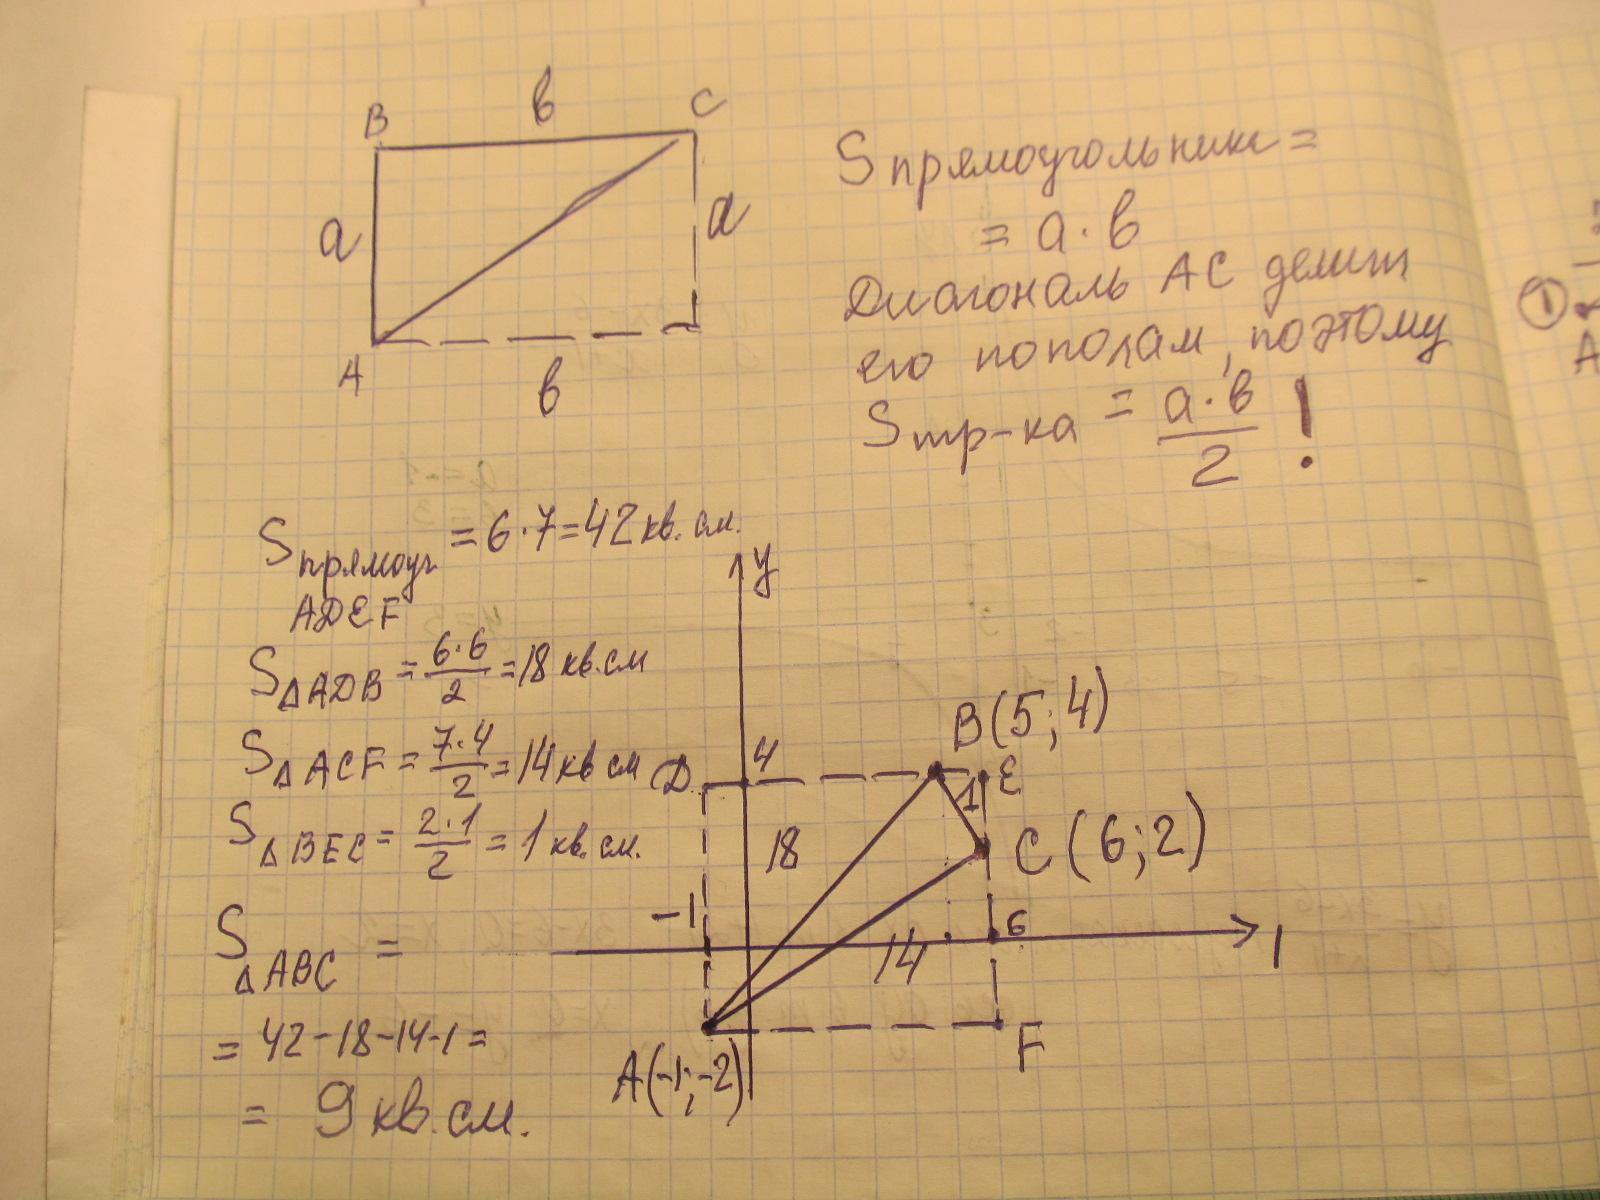 B
в
C
a
a
A
в
S прямоугольника =
= a · в
Диагональ AC делит
его пополам, поэтому
S тр-ка = a · в / 2 !
S прямоуг = 6 · 7 = 42 кв. см.
ADEF
S △ADB = 6·6 / 2 = 18 кв.см
S △ACF = 7·4 / 2 = 14 кв см
S △BEC = 2·1 / 2 = 1 кв.см.
S △ABC =
= 42-18-14-1 =
= 9 кв.см.
y
B(5;4)
D
4
E
1
18
C(6;2)
-1
6
14
1
A(-1;-2)
F
1
A